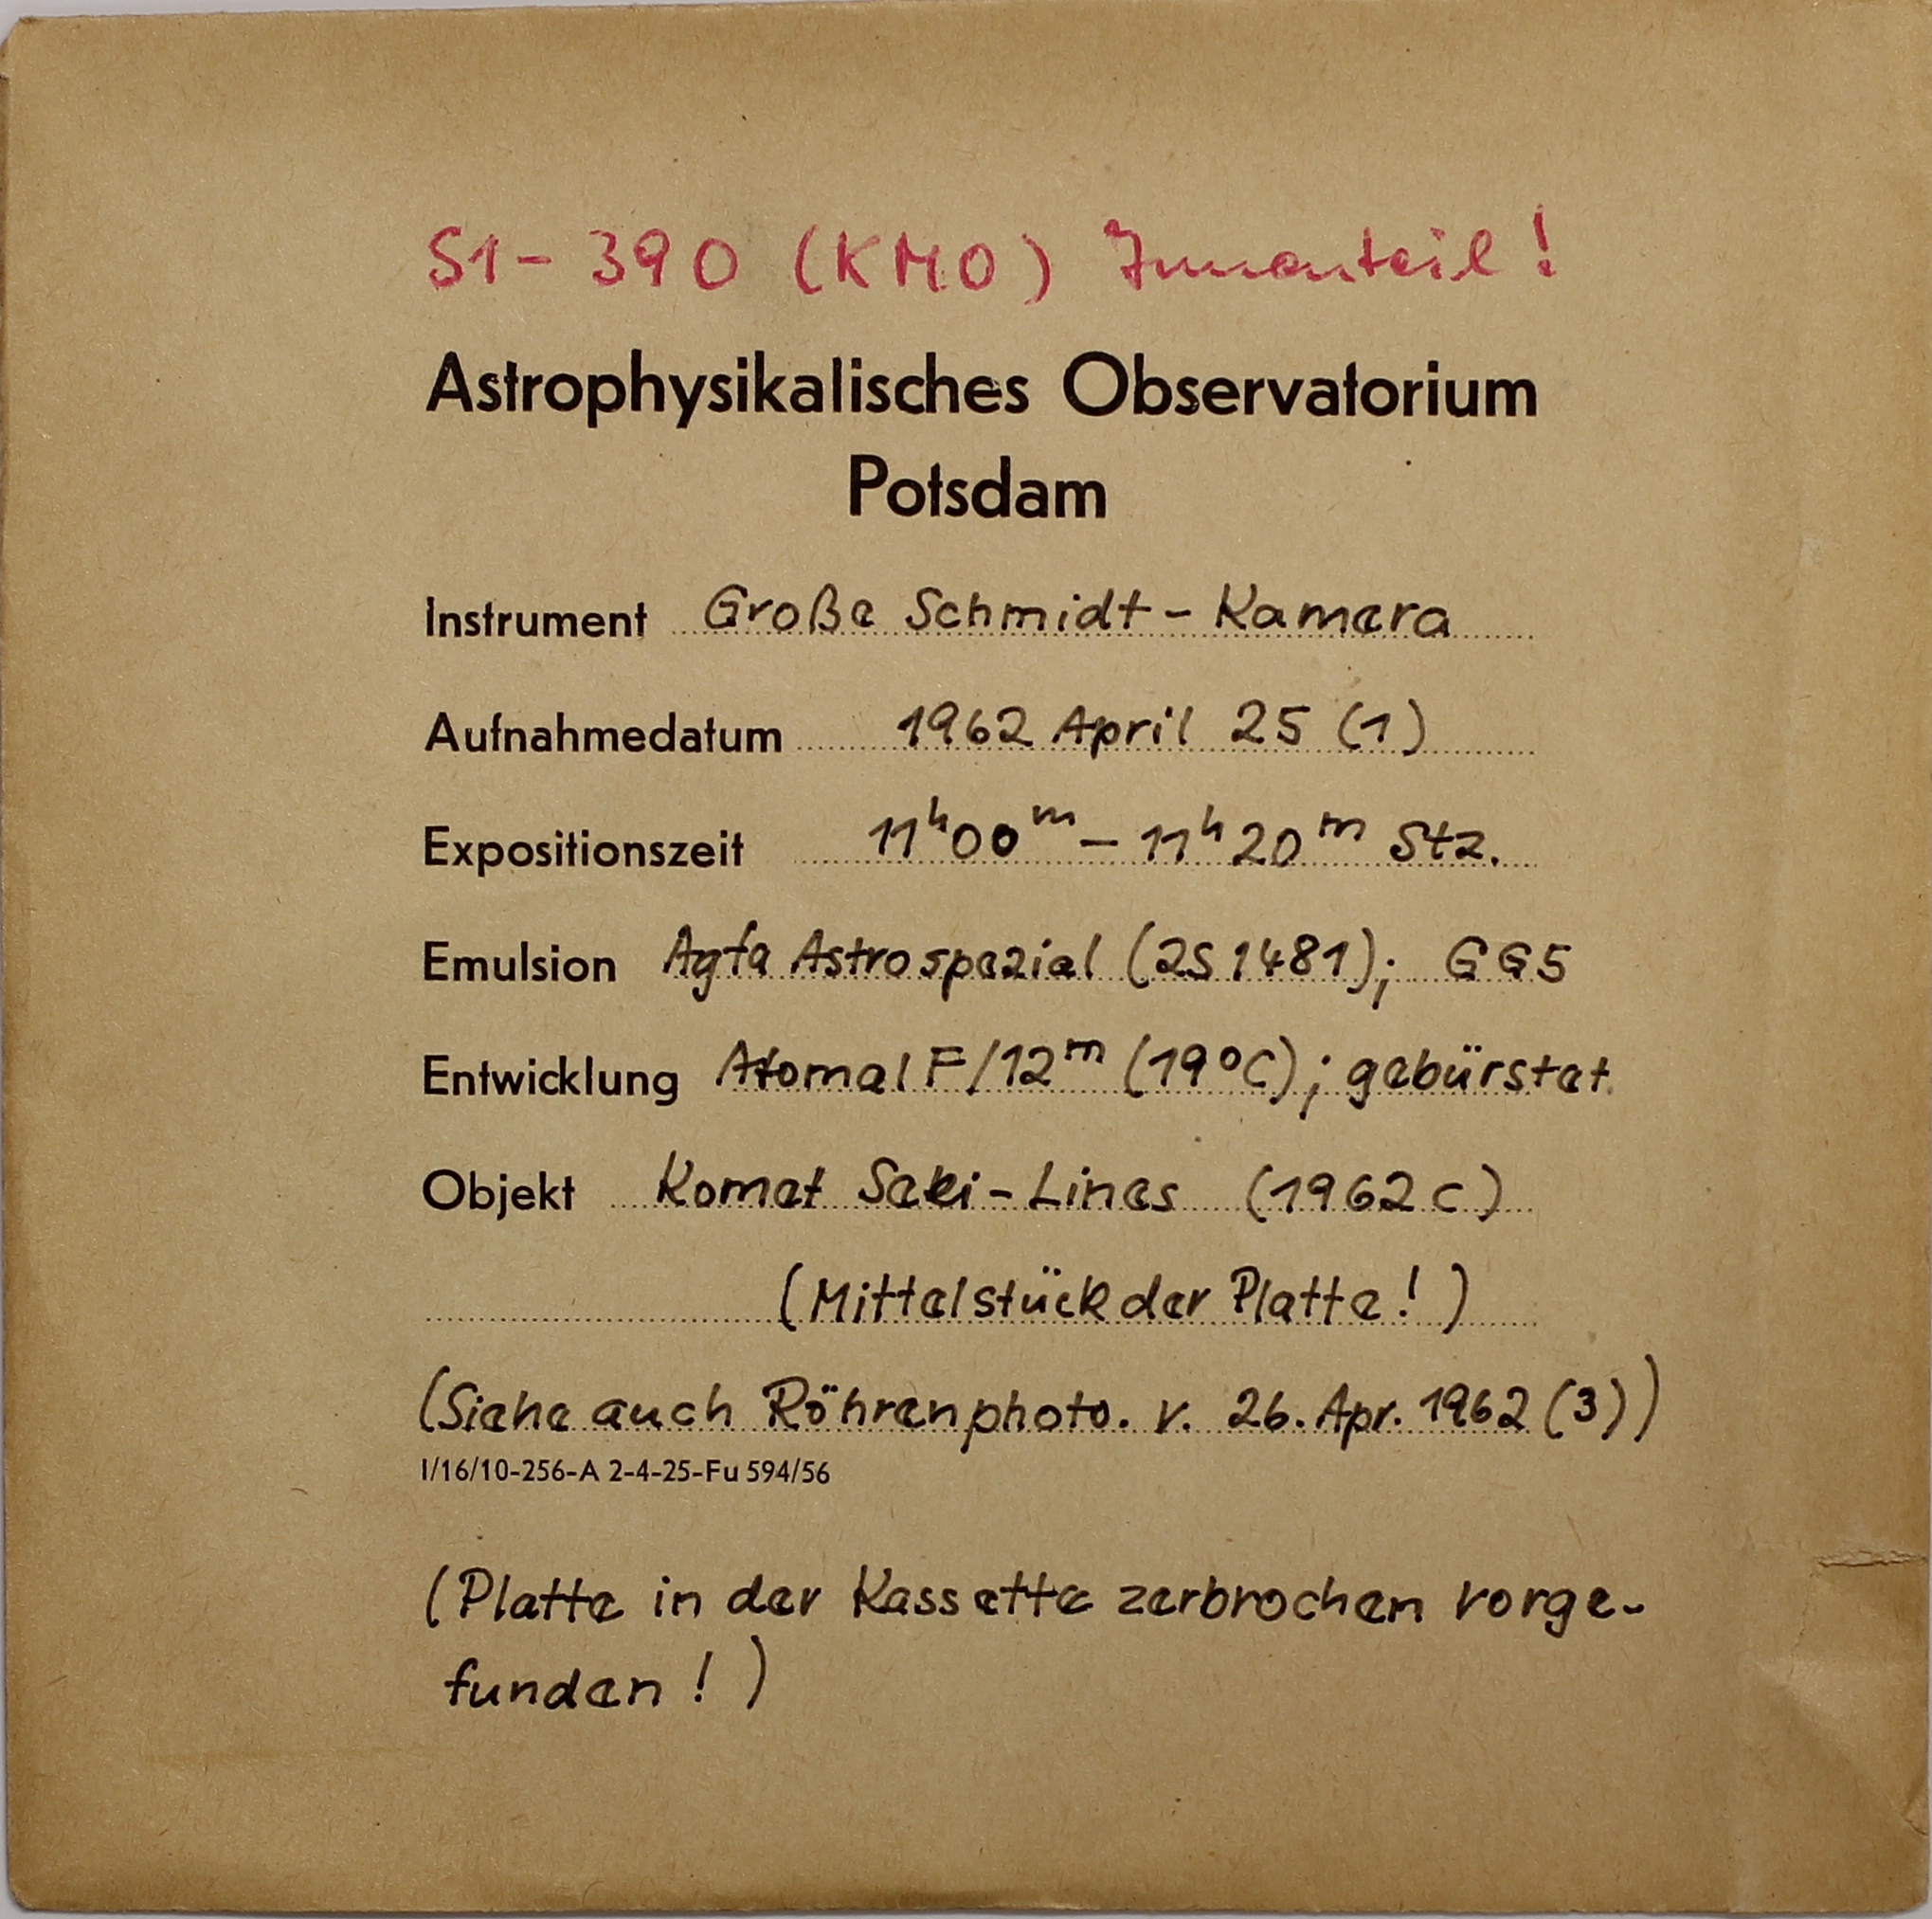 S1-390 (KMO) Innenteil!
Astrophysikalisches Observatorium
Potsdam
Instrument Große Schmidt-Kamera
Aufnahmedatum 1962 April 25 (1)
Expositionszeit 11ʰ00ᵐ – 11ʰ20ᵐ Stz.
Emulsion Agfa Astrospezial (2S1481); GG5
Entwicklung Atomal F/12ᵐ (19°C); gebürstet
Objekt Komet Seki-Lines (1962c)
(Mittelstück der Platte!)
(Siehe auch Röhrenphoto. v. 26. Apr. 1962 (3))
I/16/10-256-A 2-4-25-Fu 594/56
(Platte in der Kassette zerbrochen vorge-
funden!)